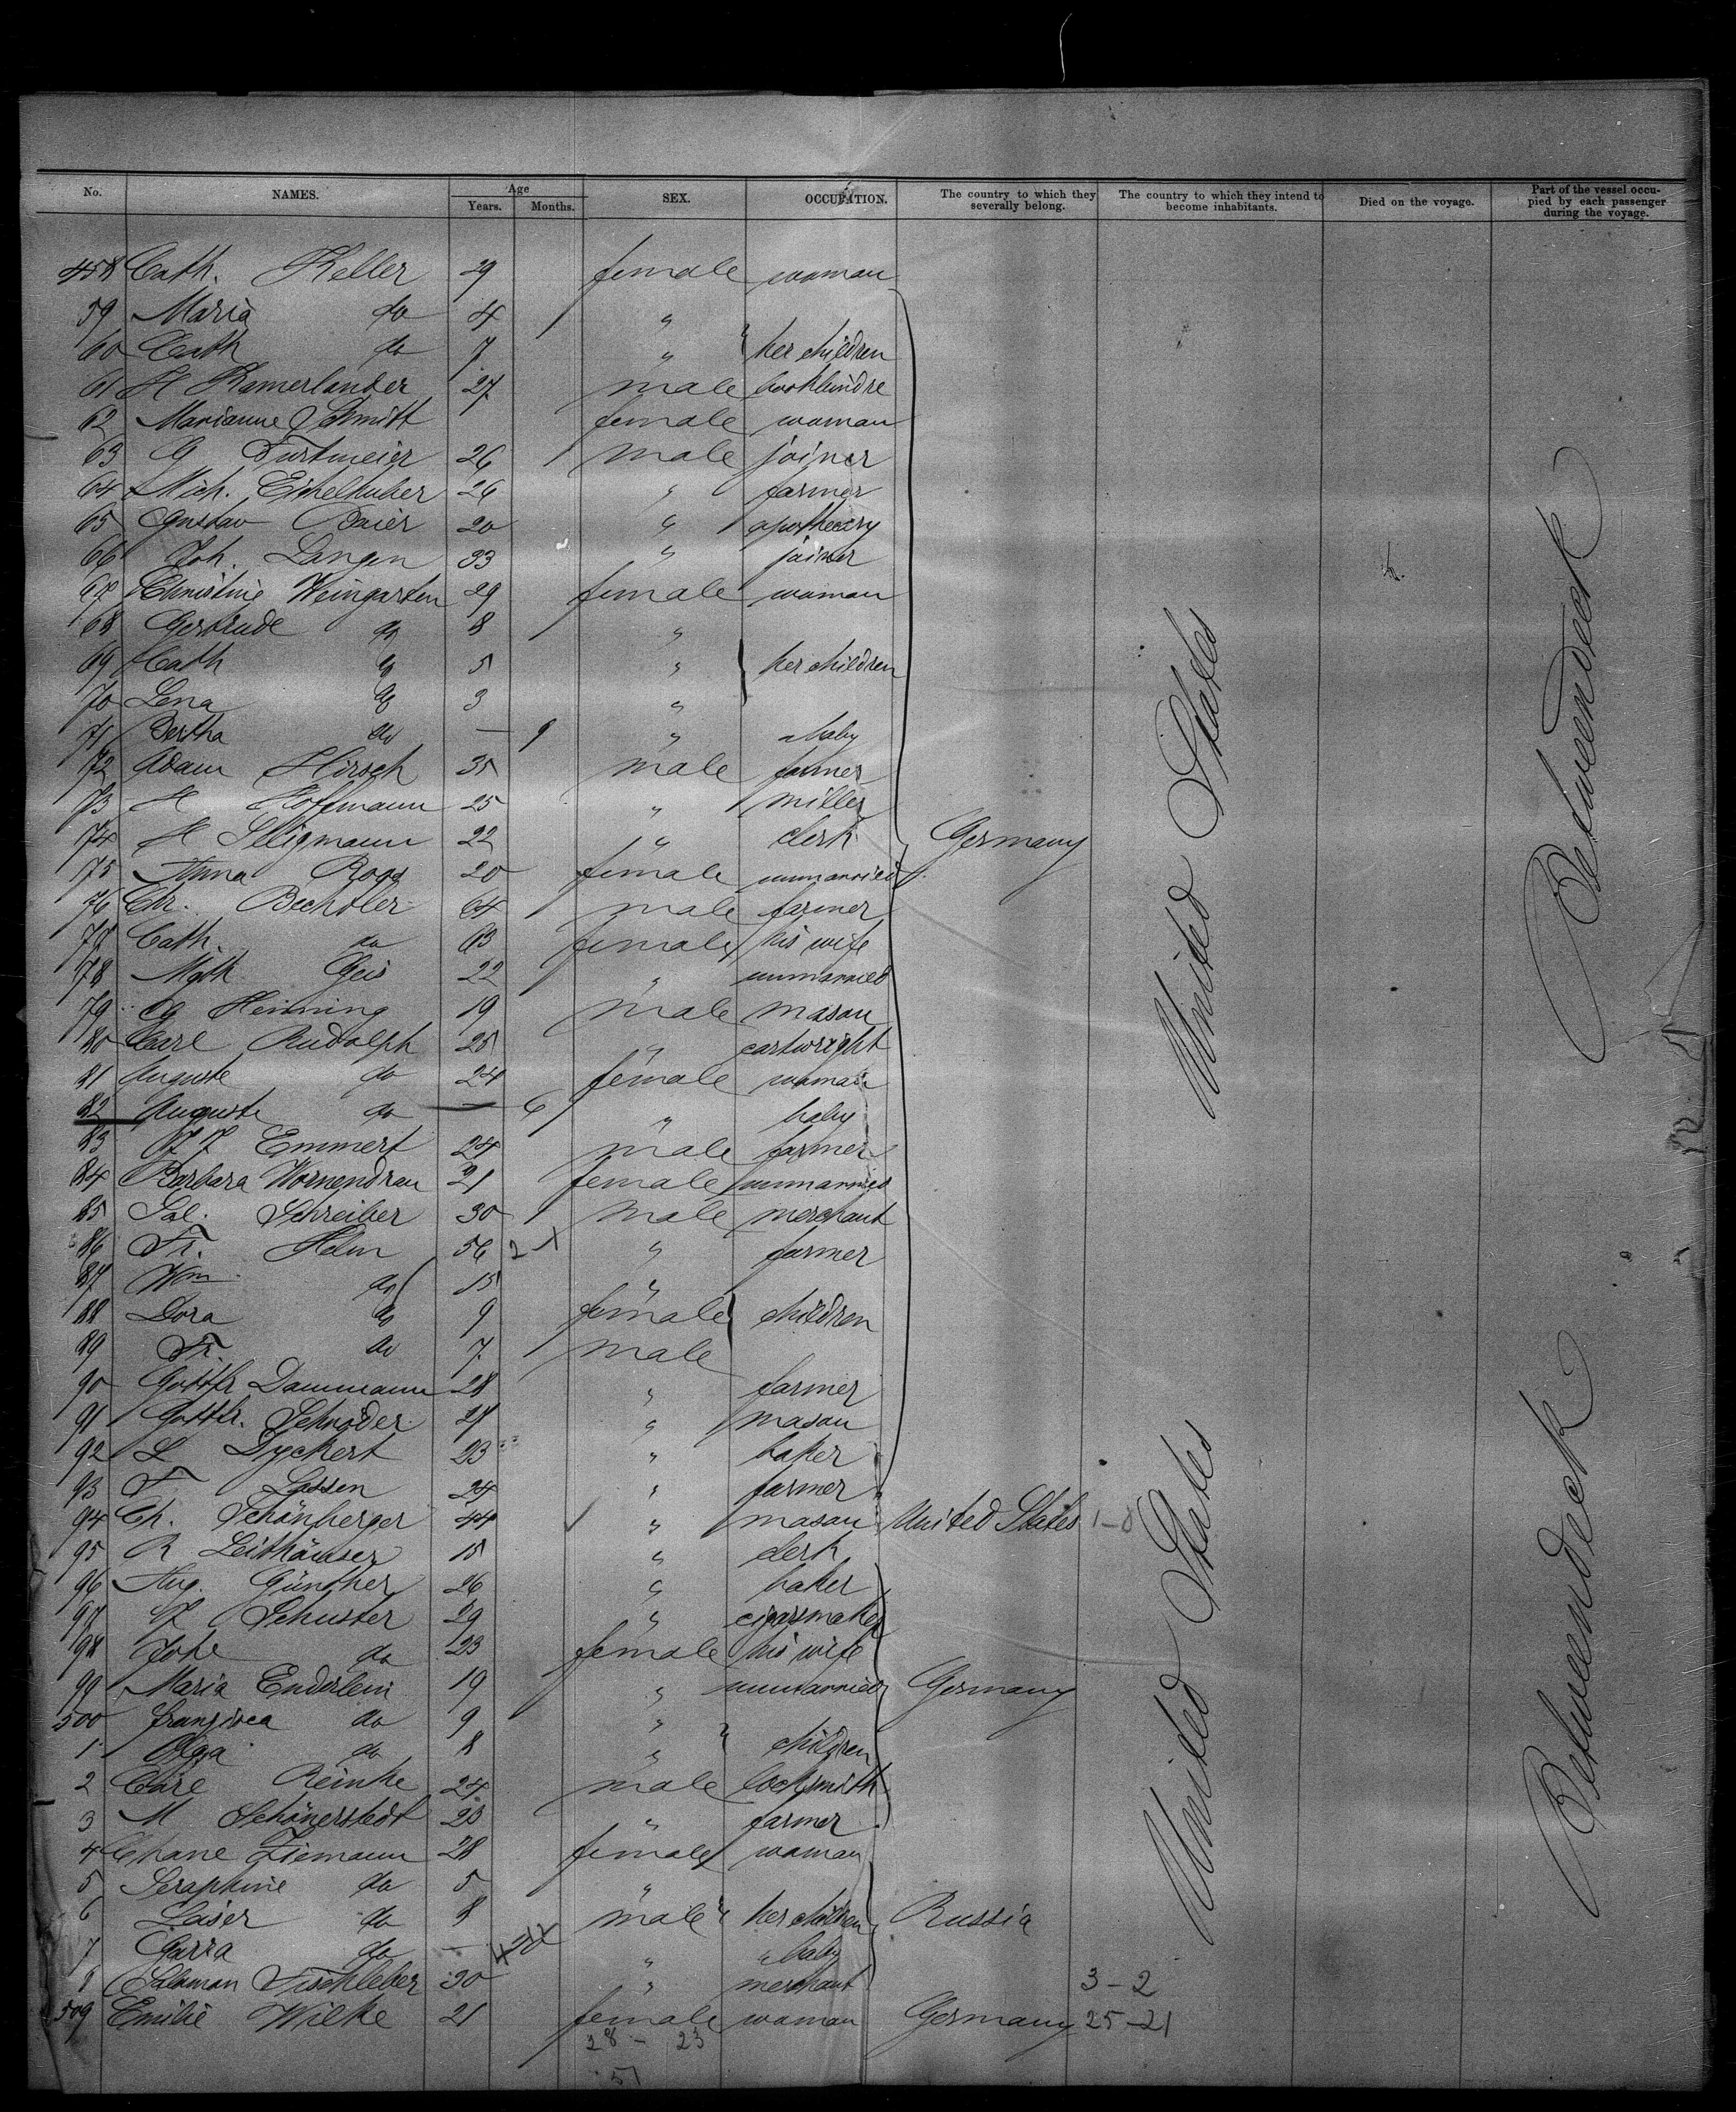 No. NAMES. Age Years. Months. SEX. OCCUPATION. The country to which they severally belong. The country to which they intend to become inhabitants. Died on the voyage. Part of the vessel occupied by each passenger during the voyage.
458 Cath. Keller 29 female woman
59 Maria do 4 "
60 Cath do 7 " her children
61 H Ramerlander 27 male
62 Marianne Schmitt female woman
63 G 26 male joiner
64 Mich. Eichelhuber 26 " farmer
65 Gustav Baier 20 "
66 Joh. Langen 33 " joiner
67 Christine Weingarten 29 female woman
68 Gertrude do 8 "
69 Cath do 5 " her children
70 Lena do 3 "
71 Bertha do — 9 " baby
72 Adam Hirsch 35 male farmer
73 H Hoffmann 25 " miller
74 H Seligmann 22 " clerk Germany
75 Anna Roos 20 female unmarried
76 Chr. Bechtler 64 male farmer
77 Cath. do 63 female his wife
78 Geis 22 " unmarried
79 G Henning 19 male mason
80 Carl Rudolph 25 " cartwright
81 Auguste do 24 female woman
82 Auguste do — 6 " baby
83 Emmert 24 male farmer
84 Barbara 21 female unmarried
85 Sal. Schreiber 30 male merchant
86 Fr. Helm 56 " farmer
87 Wm do 15 "
88 Dora do 9 female children
89 Fr. do 7 male
90 Gottfr Dammann 28 " farmer
91 Gottfr. Schröder 21 " mason
92 L Dyckert 23 " baker
93 F Lassen 24 " farmer
94 Ch. Schönberger 44 " mason United States 1-0
95 R Leithäuser 15 " clerk
96 Aug. Günther 26 " baker
97 J Schuster 29 " cigarsmaker
98 do 23 female his wife
99 Maria Enderlein 19 " unmarried Germany
500 Franzisca do 9 "
1 Olga do 8 " children
2 Carl Reinke 24 male locksmith
3 M Schönerstedt 23 " farmer
4 Chane Ziemann 28 female woman
5 Seraphine do 5 "
6 Laser do 8 male her children Russia
7 do — " baby
8 Salomon Tischleber 30 " merchant 3-2
509 Emilie Wilke 21 female woman Germany 25-21
28 - 23
51
United States
United States
Betweendeck
Betweendeck